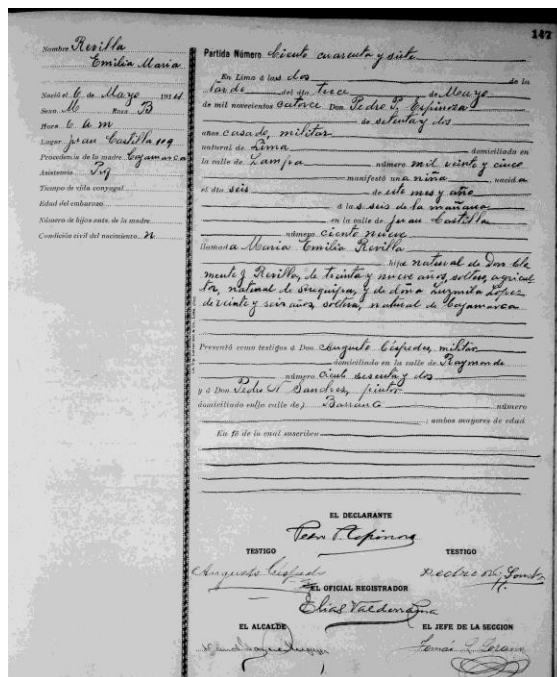 147
Nombre Revilla
Emilia Maria
Nació el 6 de Mayo 1914
Sexo M Raza B
Hora 6 a m
Lugar Juan Castilla 109
Procedencia de la madre Cajamarca
Asistencia
Tiempo de vida conyugal
Edad del embarazo
Número de hijos ants. de la madre
Condición civil del nacimiento N
Partida Número Ciento cuarenta y siete
En Lima á las dos de la
tarde del día trece de Mayo
de mil novecientos catorce Don Pedro P. Espinoza
de setenta y dos
años casado, militar
natural de Lima domiciliado en
la calle de Lampa número mil veinte y cinco
manifestó una niña nacida
el día seis de este mes y año
á las seis de la mañana
en la calle de Juan Castilla
número ciento nueve
llamada Maria Emilia Revilla
hija natural de Don Cle
mente J Revilla, de treinta y nueve años, soltero, agricul
tor, natural de Arequipa, y de doña Luzmila Lopez
de veinte y seis años, soltera, natural de Cajamarca
Presentó como testigos á Don Augusto Céspedes, militar
domiciliado en la calle de Raymondi
número ciento sesenta y dos
y á Don Pedro N Sanchez, pintor
domiciliado en la calle de Barranco número
ambos mayores de edad
En fé de lo cual suscriben
EL DECLARANTE
Pedro P. Espinoza
TESTIGO TESTIGO
Augusto Céspedes Pedro N.
EL OFICIAL REGISTRADOR
Elias Valderrama
EL ALCALDE EL JEFE DE LA SECCION
Tomás L.